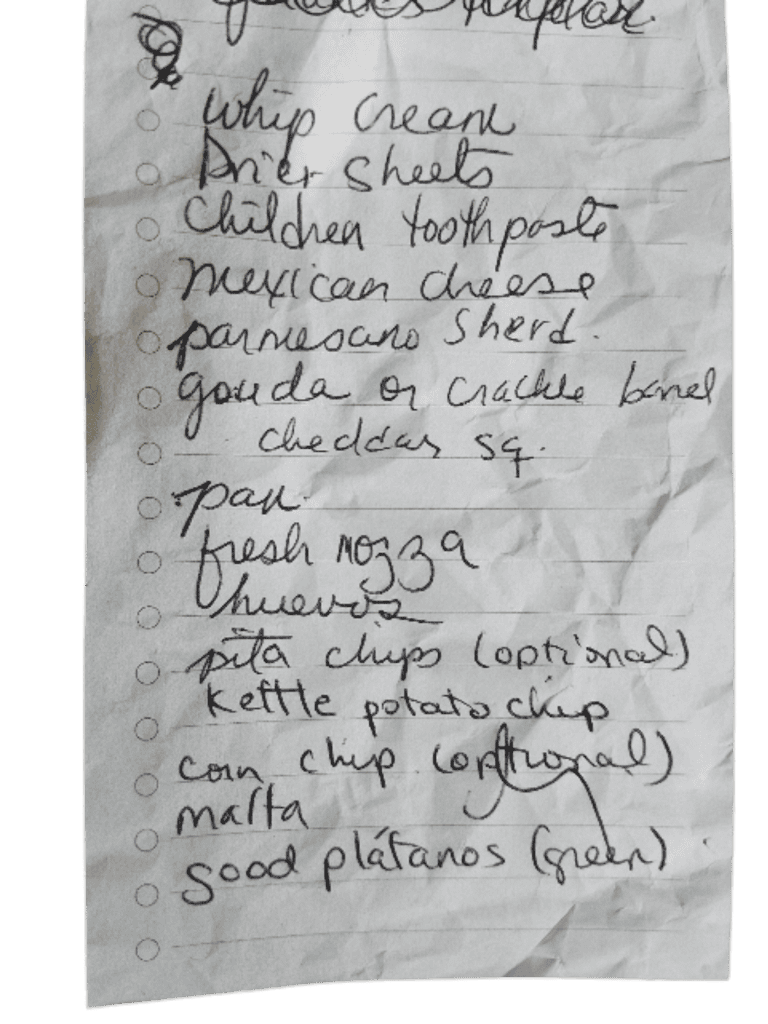 whip cream
Drier sheets
Children toothpaste
mexican cheese
parmesano sherd.
gouda or crackle barrel
cheddar sq.
pan
fresh mozza
huevos
pita chips (optional)
Kettle potato chip
corn chip (optional)
malta
good plátanos (green)